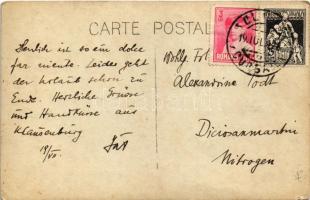 CARTE POSTALA
Deutlich ist so ein dolce
far niente. Leider geht
der Urlaub schon zu
Ende. Herzliche Grüsse
und Handküsse aus
Klausenburg
19/VII.
Wohlg. Frl.
Alexandrine Todt
Diciosanmartin
Nitrogen
ROMANIA
CLUJ